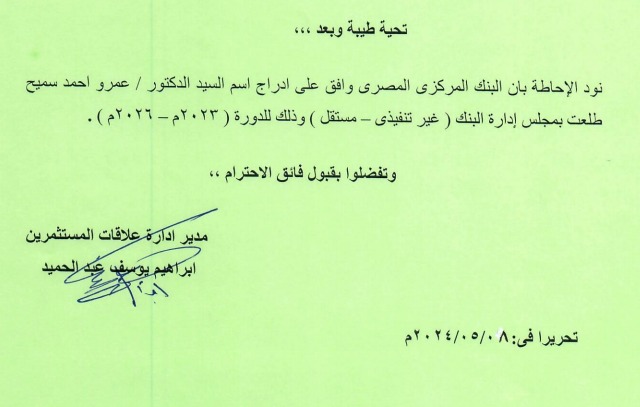 تحية طيبة وبعد ,,,
نود الإحاطة بان البنك المركزى المصرى وافق على ادراج اسم السيد الدكتور / عمرو احمد سميح
طلعت بمجلس إدارة البنك ( غير تنفيذى – مستقل ) وذلك للدورة ( ٢٠٢٣م – ٢٠٢٦م ) .
وتفضلوا بقبول فائق الاحترام ,,
مدير ادارة علاقات المستثمرين
ابراهيم يوسف عبد الحميد
تحريرا فى: ٢٠٢٤/٠٥/٠٨م